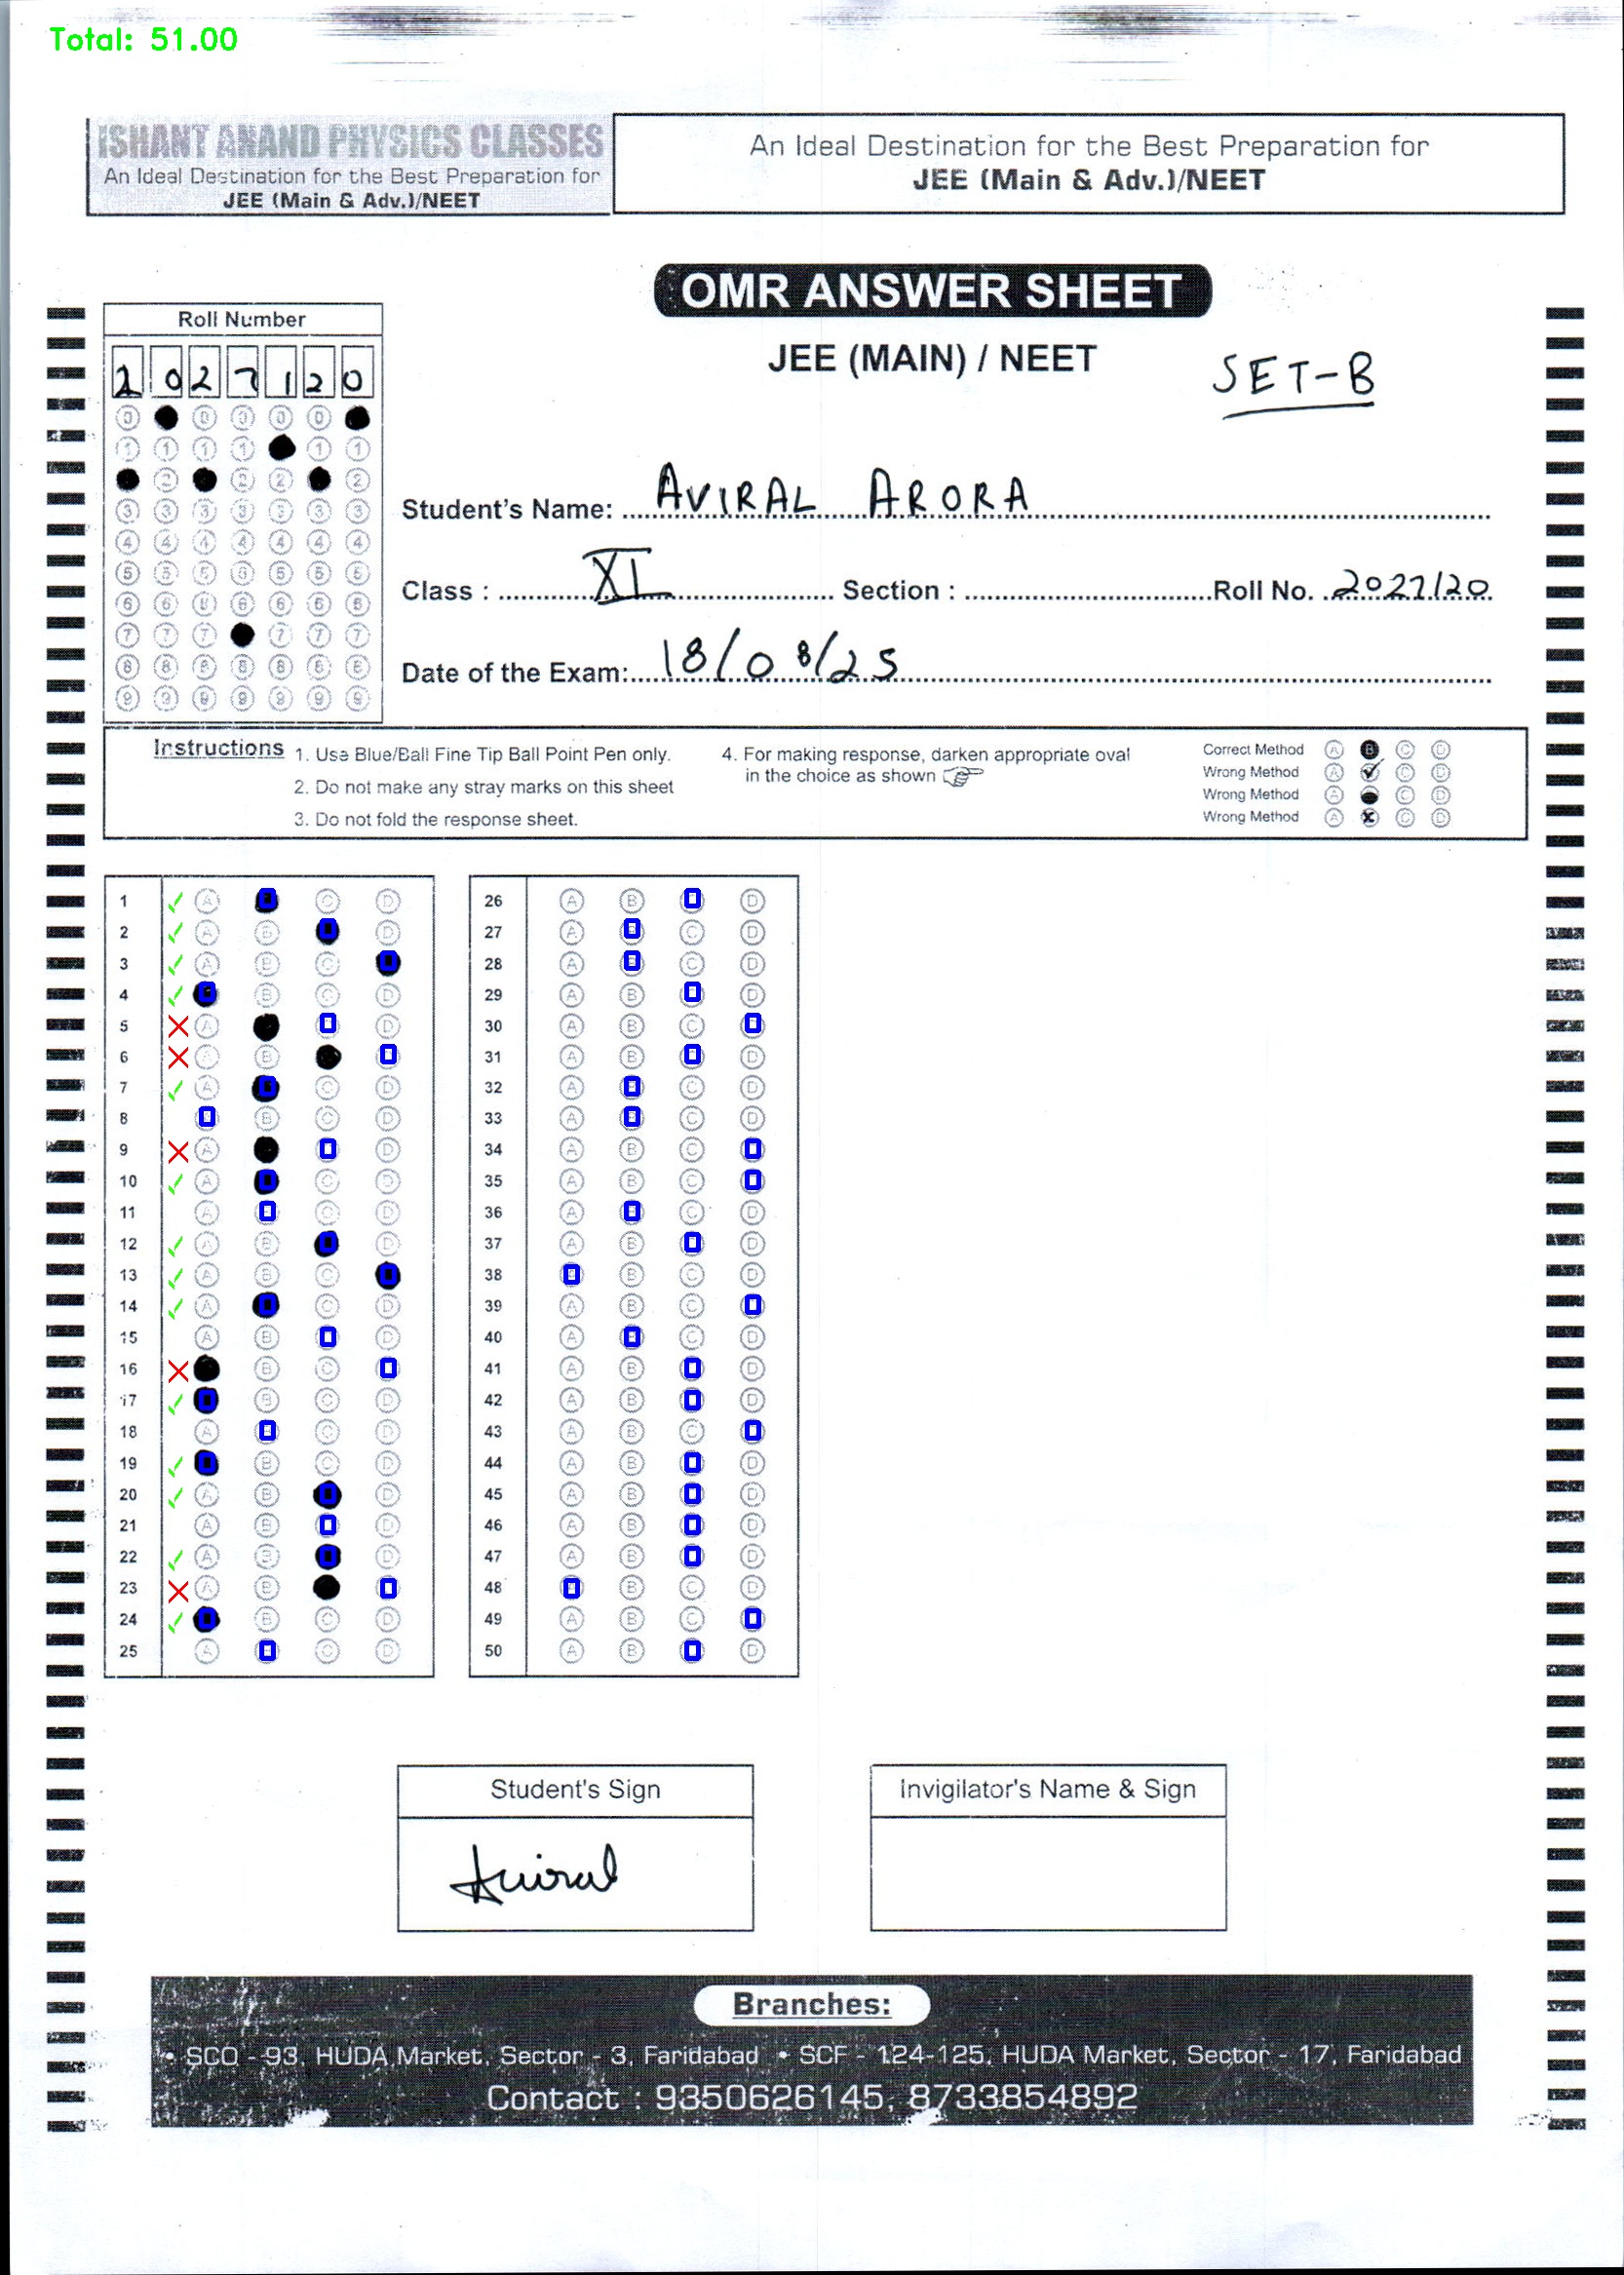 Total: 51.00
ISHANT ANAND PHYSICS CLASSES
An Ideal Destination for the Best Preparation for
JEE (Main & Adv.)/NEET
An Ideal Destination for the Best Preparation for
JEE (Main & Adv.)/NEET
OMR ANSWER SHEET
JEE (MAIN) / NEET
SET-B
Roll Number
2 0 2 7 1 2 0
0 0 0 0 0
1 1 1 1 1 1
2 2 2 2
3 3 3 3 3 3 3
4 4 4 4 4 4 4
5 5 5 5 5 5 5
6 6 6 6 6 6 6
7 7 7 7 7 7
8 8 8 8 8 8 8
9 9 9 9 9 9 9
Student's Name: AVIRAL ARORA
Class : XI Section : Roll No. 2027120
Date of the Exam: 18/08/25
Instructions
1. Use Blue/Ball Fine Tip Ball Point Pen only.
2. Do not make any stray marks on this sheet
3. Do not fold the response sheet.
4. For making response, darken appropriate oval
in the choice as shown
Correct Method A B C D
Wrong Method A C D
Wrong Method A C D
Wrong Method A C D
1 A C D
2 A B D
3 A B C
4 B C D
5 A D
6 A B
7 A C D
8 B C D
9 A D
10 A C D
11 A C D
12 A B D
13 A B C
14 A C D
15 A B D
16 B C
17 B C D
18 A C D
19 B C D
20 A B D
21 A B D
22 A B D
23 A B
24 B C D
25 A C D
26 A B D
27 A C D
28 A C D
29 A B D
30 A B C
31 A B D
32 A C D
33 A C D
34 A B C
35 A B C
36 A C D
37 A B D
38 B C D
39 A B C
40 A C D
41 A B D
42 A B D
43 A B C
44 A B D
45 A B D
46 A B D
47 A B D
48 B C D
49 A B C
50 A B D
Student's Sign
Aviral
Invigilator's Name & Sign
Branches:
• SCO - 93, HUDA Market, Sector - 3, Faridabad • SCF - 124-125, HUDA Market, Sector - 17, Faridabad
Contact : 9350626145, 8733854892